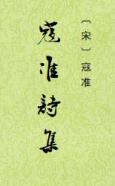 〔宋〕寇准
寇准詩集